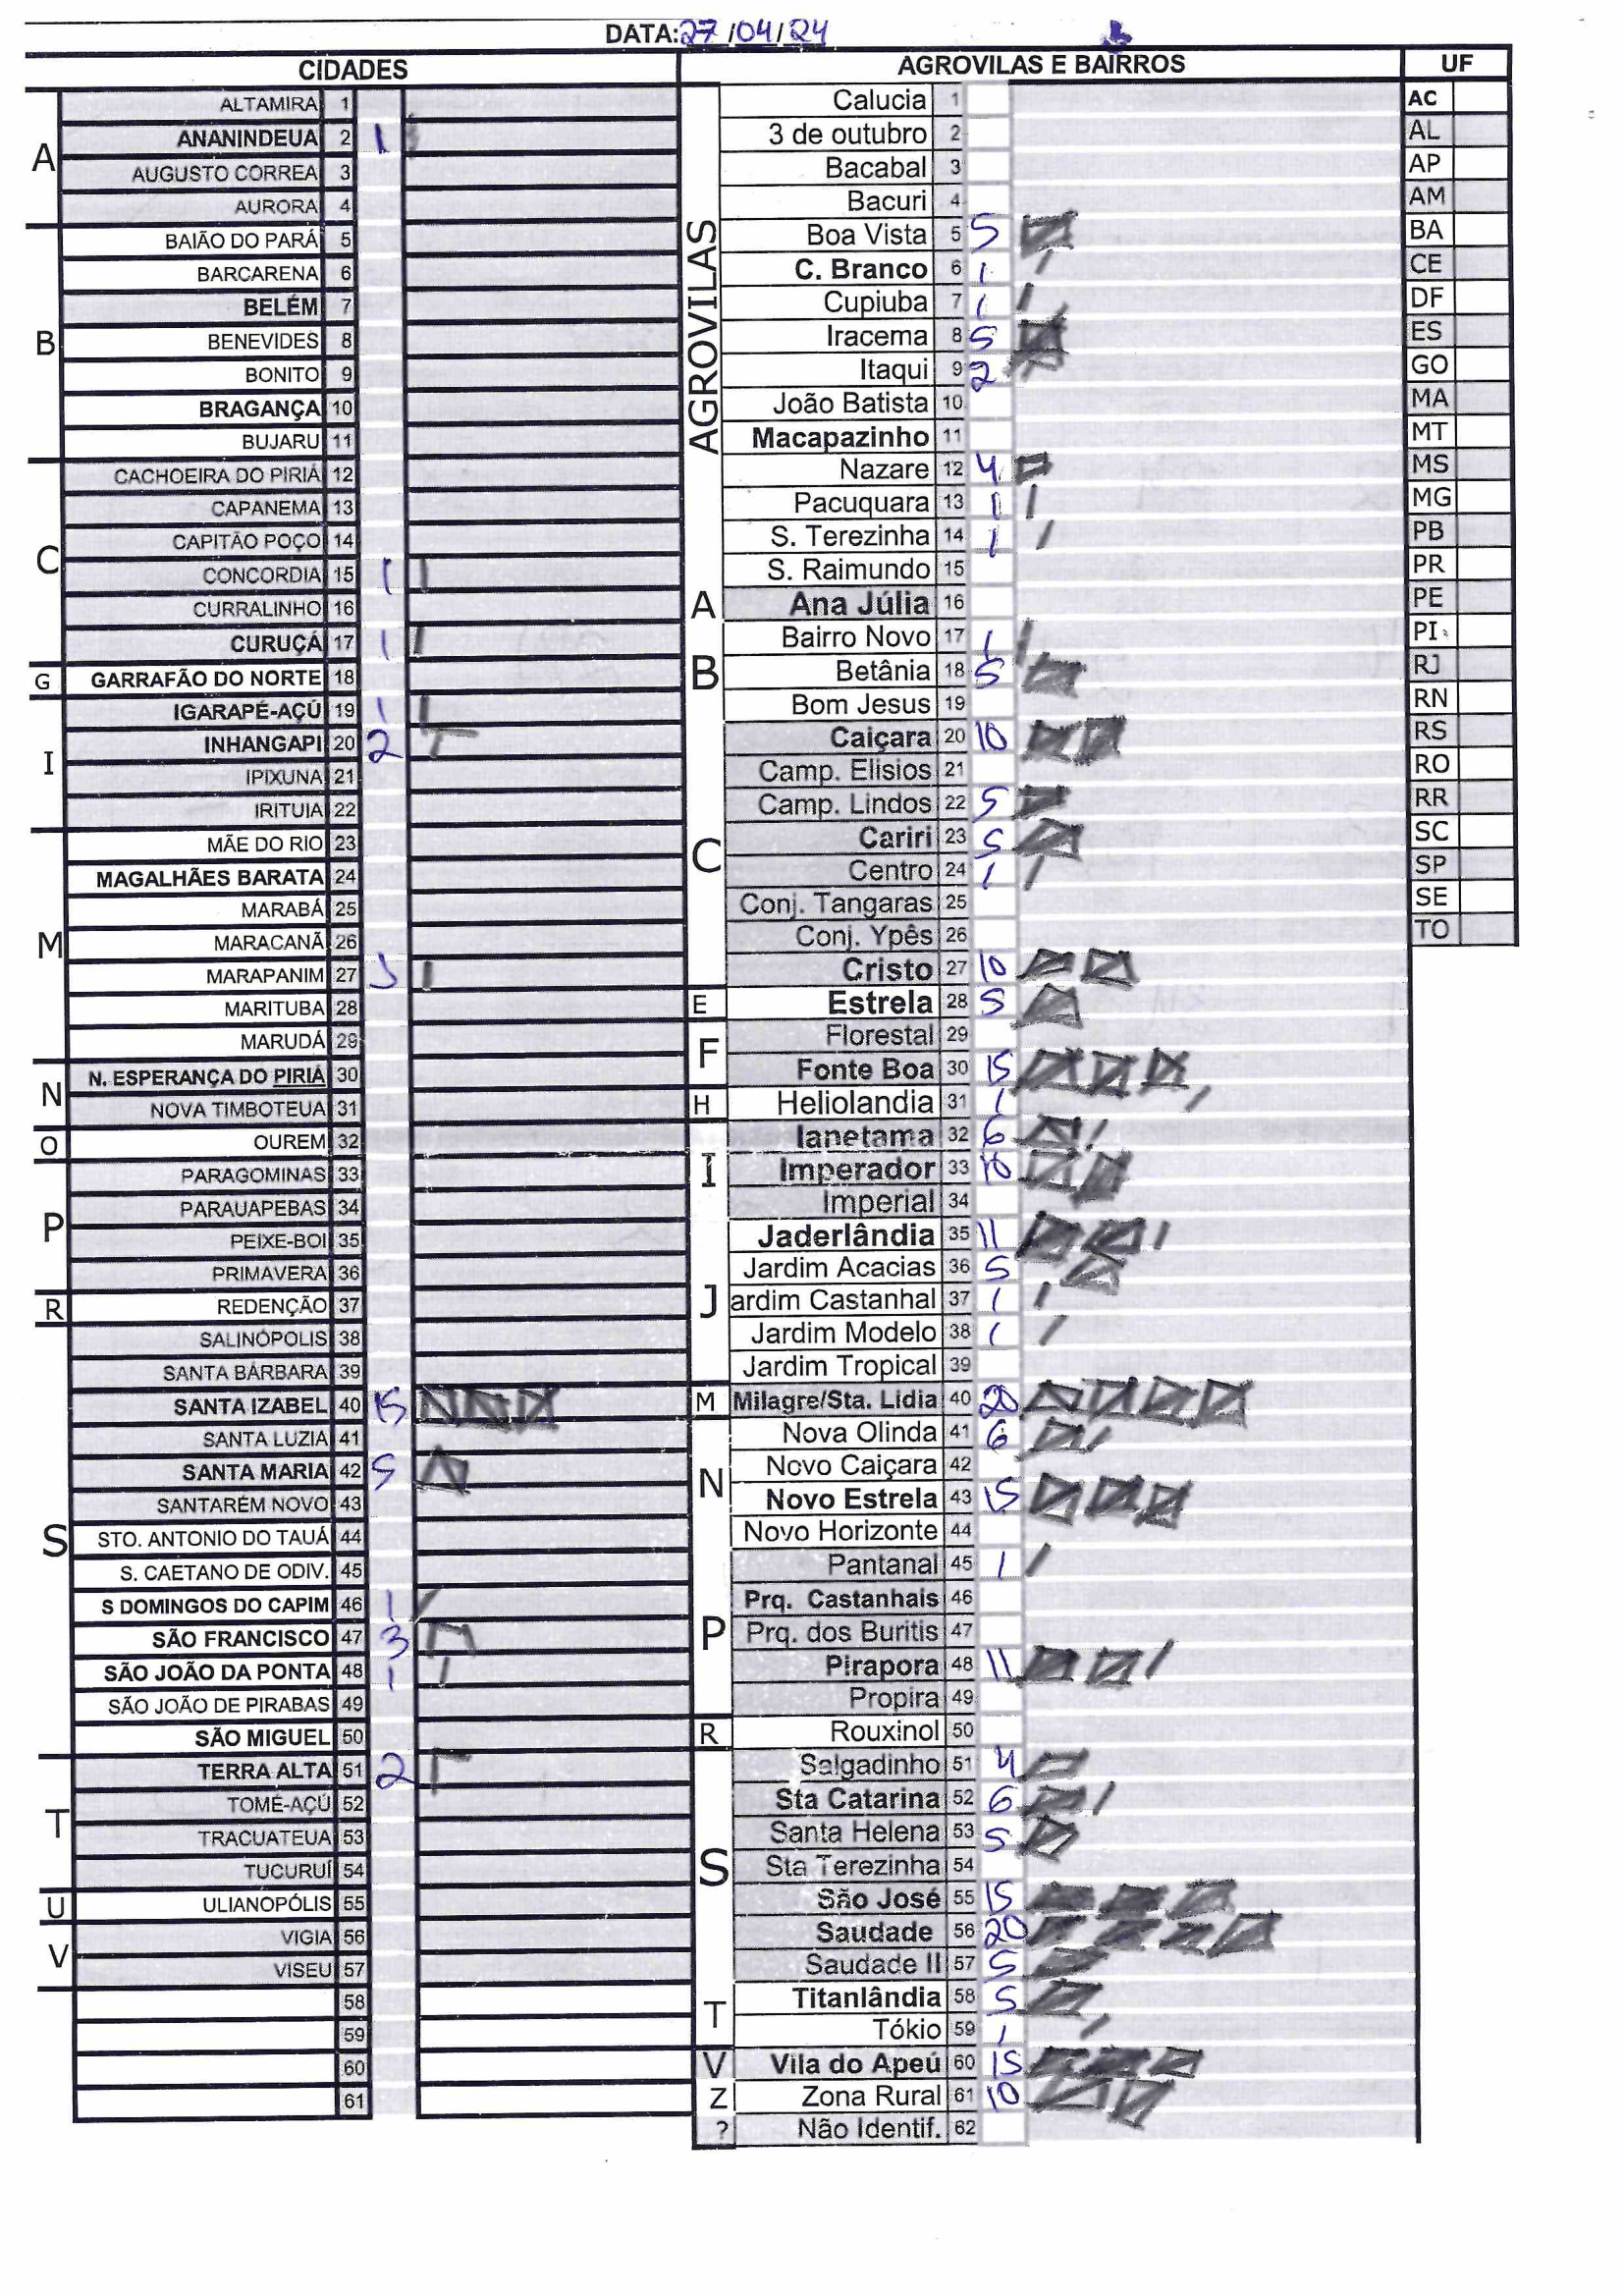 DATA: 27/04/24
CIDADES
A
ALTAMIRA 1
ANANINDEUA 2 1
AUGUSTO CORREA 3
AURORA 4
B
BAIÃO DO PARÁ 5
BARCARENA 6
BELÉM 7
BENEVIDES 8
BONITO 9
BRAGANÇA 10
BUJARU 11
C
CACHOEIRA DO PIRIÁ 12
CAPANEMA 13
CAPITÃO POÇO 14
CONCORDIA 15 1
CURRALINHO 16
CURUÇÁ 17 1
G
GARRAFÃO DO NORTE 18
I
IGARAPÉ-AÇÚ 19 1
INHANGAPI 20 2
IPIXUNA 21
IRITUIA 22
M
MÃE DO RIO 23
MAGALHÃES BARATA 24
MARABÁ 25
MARACANÃ 26
MARAPANIM 27 1
MARITUBA 28
MARUDÁ 29
N
N. ESPERANÇA DO PIRIÁ 30
NOVA TIMBOTEUA 31
O
OUREM 32
P
PARAGOMINAS 33
PARAUAPEBAS 34
PEIXE-BOI 35
PRIMAVERA 36
R
REDENÇÃO 37
S
SALINÓPOLIS 38
SANTA BÁRBARA 39
SANTA IZABEL 40 15
SANTA LUZIA 41
SANTA MARIA 42 5
SANTARÉM NOVO 43
STO. ANTONIO DO TAUÁ 44
S. CAETANO DE ODIV. 45
S DOMINGOS DO CAPIM 46 1
SÃO FRANCISCO 47 3
SÃO JOÃO DA PONTA 48 1
SÃO JOÃO DE PIRABAS 49
SÃO MIGUEL 50
T
TERRA ALTA 51 2
TOMÉ-AÇÚ 52
TRACUATEUA 53
TUCURUÍ 54
U
ULIANOPÓLIS 55
V
VIGIA 56
VISEU 57
58
59
60
61
AGROVILAS E BAIRROS
AGROVILAS
Calucia 1
3 de outubro 2
Bacabal 3
Bacuri 4
Boa Vista 5 5
C. Branco 6 1
Cupiuba 7 1
Iracema 8 5
Itaqui 9 2
João Batista 10
Macapazinho 11
Nazare 12 4
Pacuquara 13 1
S. Terezinha 14 1
S. Raimundo 15
A
Ana Júlia 16
B
Bairro Novo 17 1
Betânia 18 5
Bom Jesus 19
C
Caiçara 20 10
Camp. Elisios 21
Camp. Lindos 22 5
Cariri 23 5
Centro 24 1
Conj. Tangaras 25
Conj. Ypês 26
Cristo 27 10
E
Estrela 28 5
F
Florestal 29
Fonte Boa 30 15
H
Heliolandia 31 1
I
Ianetama 32 6
Imperador 33 10
Imperial 34
J
Jaderlândia 35 11
Jardim Acacias 36 5
ardim Castanhal 37 1
Jardim Modelo 38 1
Jardim Tropical 39
M
Milagre/Sta. Lidia 40 20
N
Nova Olinda 41 6
Novo Caiçara 42
Novo Estrela 43 15
Novo Horizonte 44
P
Pantanal 45 1
Prq. Castanhais 46
Prq. dos Buritis 47
Pirapora 48 11
Propira 49
R
Rouxinol 50
S
Salgadinho 51 4
Sta Catarina 52 6
Santa Helena 53 5
Sta Terezinha 54
São José 55 15
Saudade 56 20
Saudade II 57 5
T
Titanlândia 58 5
Tókio 59 1
V
Vila do Apeú 60 15
Z
Zona Rural 61 10
?
Não Identif. 62
UF
AC
AL
AP
AM
BA
CE
DF
ES
GO
MA
MT
MS
MG
PB
PR
PE
PI
RJ
RN
RS
RO
RR
SC
SP
SE
TO